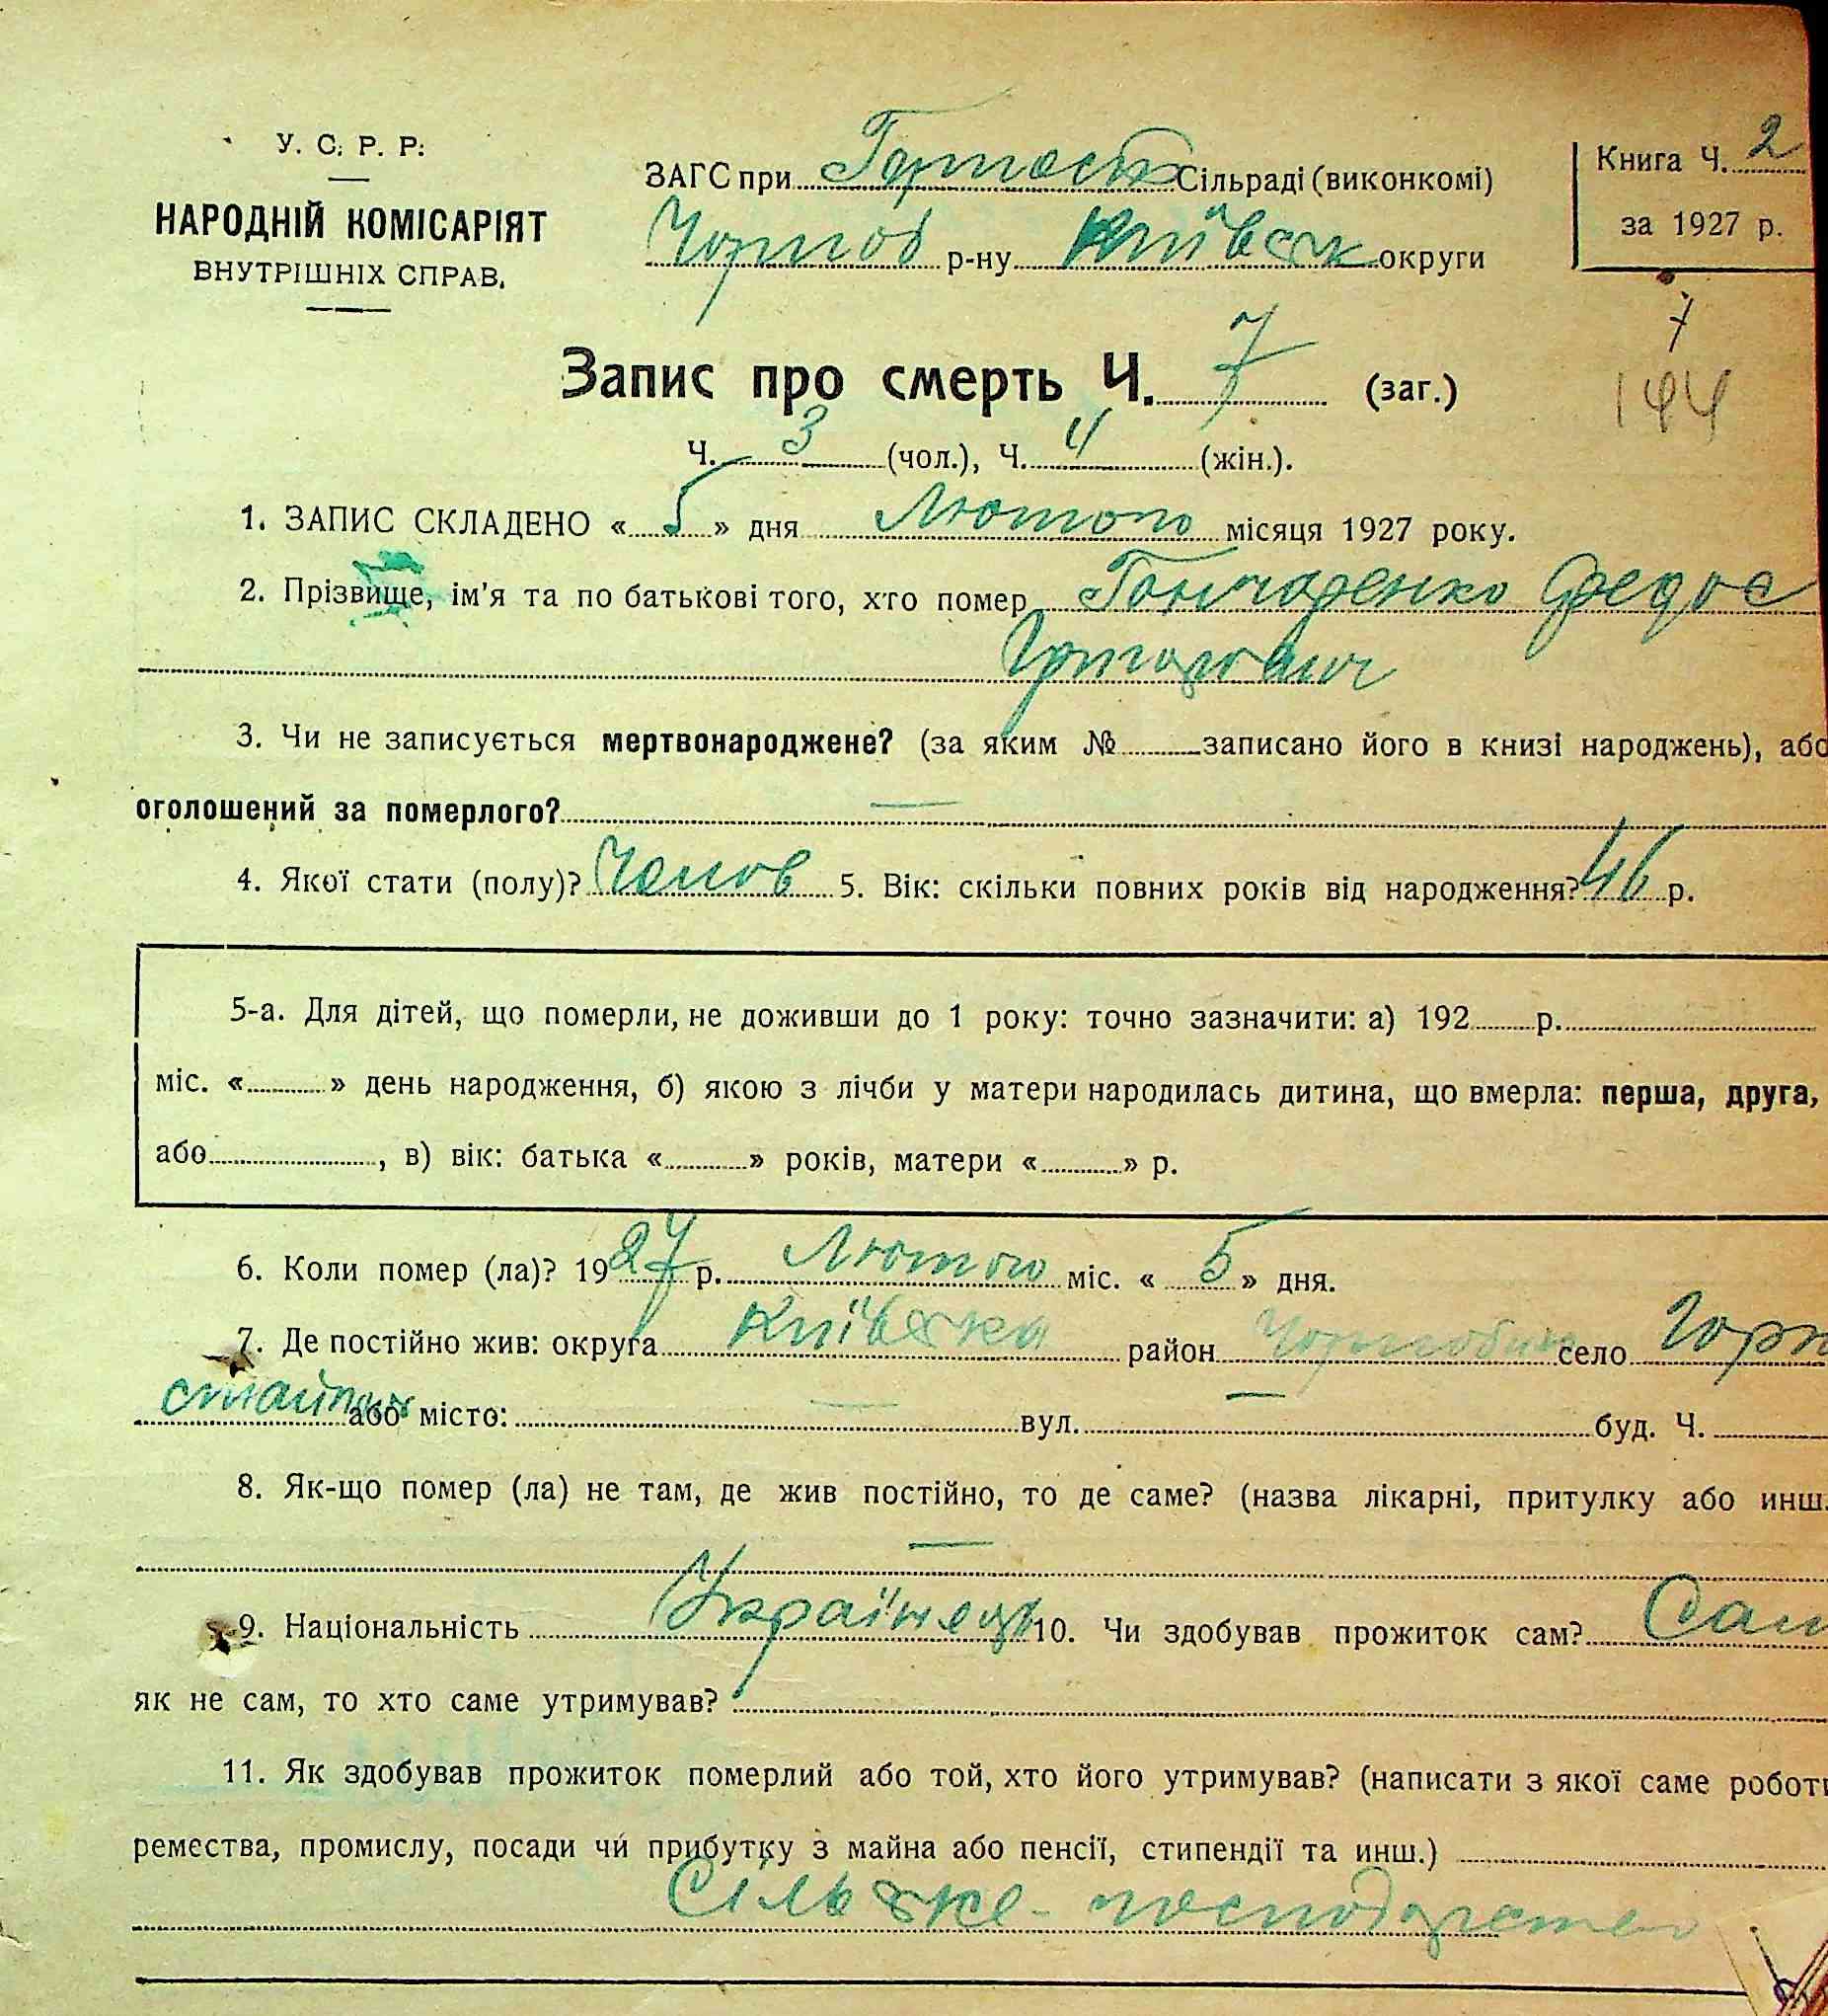 У. С. Р. Р.
НАРОДНІЙ КОМІСАРІЯТ
ВНУТРІШНІХ СПРАВ.
ЗАГС при Горност Сільраді (виконкомі)
Чорноб р-ну Київськ округи
Книга Ч. 2
за 1927 р.
7
144
Запис про смерть Ч. 7 (заг.)
Ч. 3 (чол.), Ч. 4 (жін.).
1. ЗАПИС СКЛАДЕНО « 5 » дня Лютого місяця 1927 року.
2. Прізвище, ім'я та по батькові того, хто помер Гончаренко Федос
Григорович
3. Чи не записується мертвонароджене? (за яким № записано його в книзі народжень), або
оголошений за померлого? —
4. Якої стати (полу)? Чолов 5. Вік: скільки повних років від народження? 46 р.
5-а. Для дітей, що померли, не доживши до 1 року: точно зазначити: а) 192 р.
міс. « » день народження, б) якою з лічби у матери народилась дитина, що вмерла: перша, друга,
або , в) вік: батька « » років, матери « » р.
6. Коли помер (ла)? 1927 р. Лютого міс. « 5 » дня.
7. Де постійно жив: округа Київська район Чорнобил село Горно
стайпіль або місто: — вул. — буд. Ч.
8. Як-що помер (ла) не там, де жив постійно, то де саме? (назва лікарні, притулку або инш.
—
9. Національність Українець 10. Чи здобував прожиток сам? Сам
як не сам, то хто саме утримував?
11. Як здобував прожиток померлий або той, хто його утримував? (написати з якої саме роботи
ремества, промислу, посади чи прибутку з майна або пенсії, стипендії та инш.)
Сільське-господарство